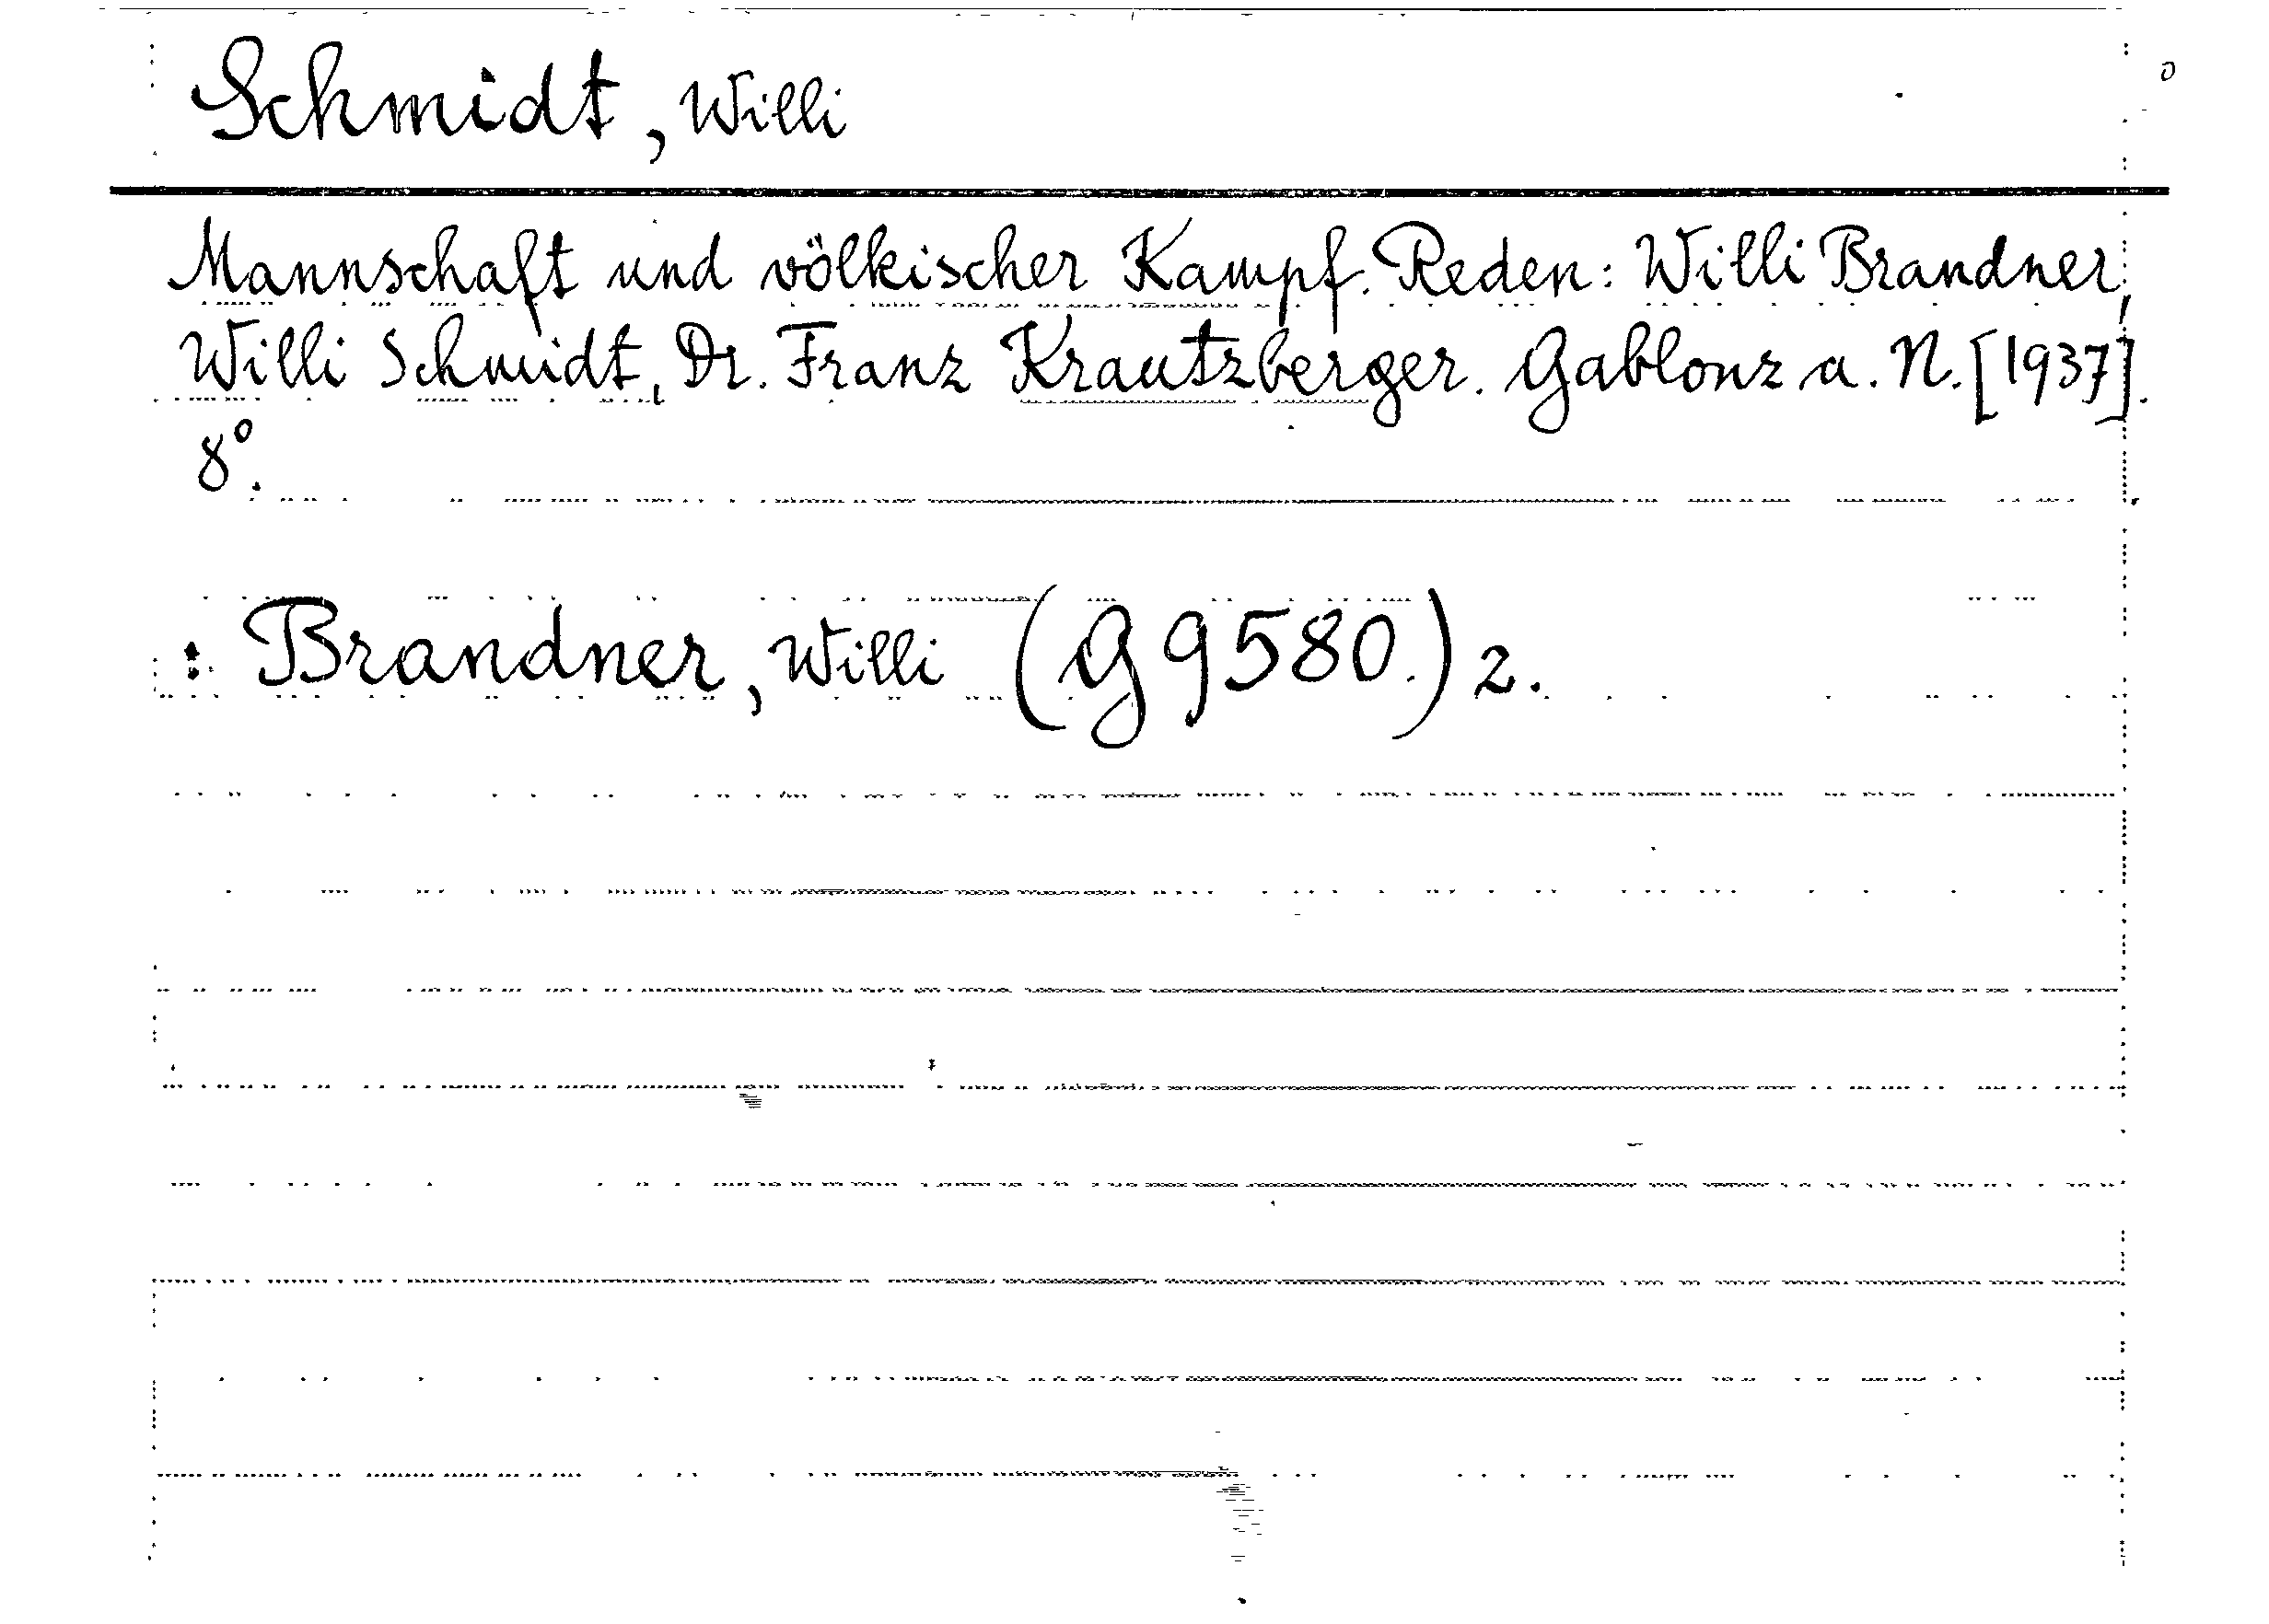 Schmidt, Willi
Mannschaft und völkischer Kampf. Reden: Willi Brandner,
Willi Schmidt, Dr. Franz Krautzberger. Gablonz a. N. [1937].
8°.
: Brandner, Willi (G 9580.) 2.